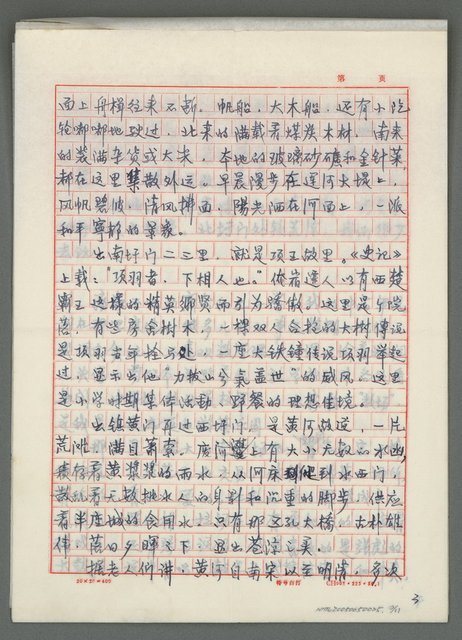 第　　页
面上舟楫往来不断。帆船，大木船，还有小汽
轮嘟嘟地驶过，北来的满载着煤炭木材，南来
的装满杂货或大米，本地的玻璃砂矿和金针菜
都在这里集散外运。早晨漫步在运河大堤上，
风帆碧波，清风拂面，陽光洒在河面上，一派
和平宁静的景象。
出南圩门二三里，就是项王故里。《史记》
上载："项羽者，下相人也。"俺岩道人以有西楚
霸王这样的精英乡贤而引为骄傲。这里是个院
落，有些房舍树木，一棵双人合抱的大树傳说
是项羽当年拴马处，一座大铁鐘传说项羽举起
过，显示出他"力拔山兮氣盖世"的威风。这里
是小学时期集体活动、野餐的理想佳境。
出镇黄门再过西圩门，是黄河故道，一片
荒滩，满目萧索，废河灘上有大小无数的水凼
積存着黄漿漿的雨水，从河床到水西门，
着无数挑水人的身影和沉重的脚步，供应
着半座城的食用水。只有那五孔大橋，古朴雄
伟，落日夕晖之下，显出苍凉之美。
据老人们讲，黄河自南宋以至明清，多次
20×20=400
稿号自打
3